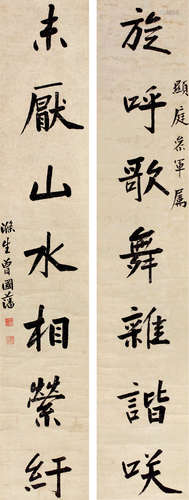 顯庭參軍属
旋呼歌舞雜諧咲
未厭山水相縈紆
滌生曾國藩